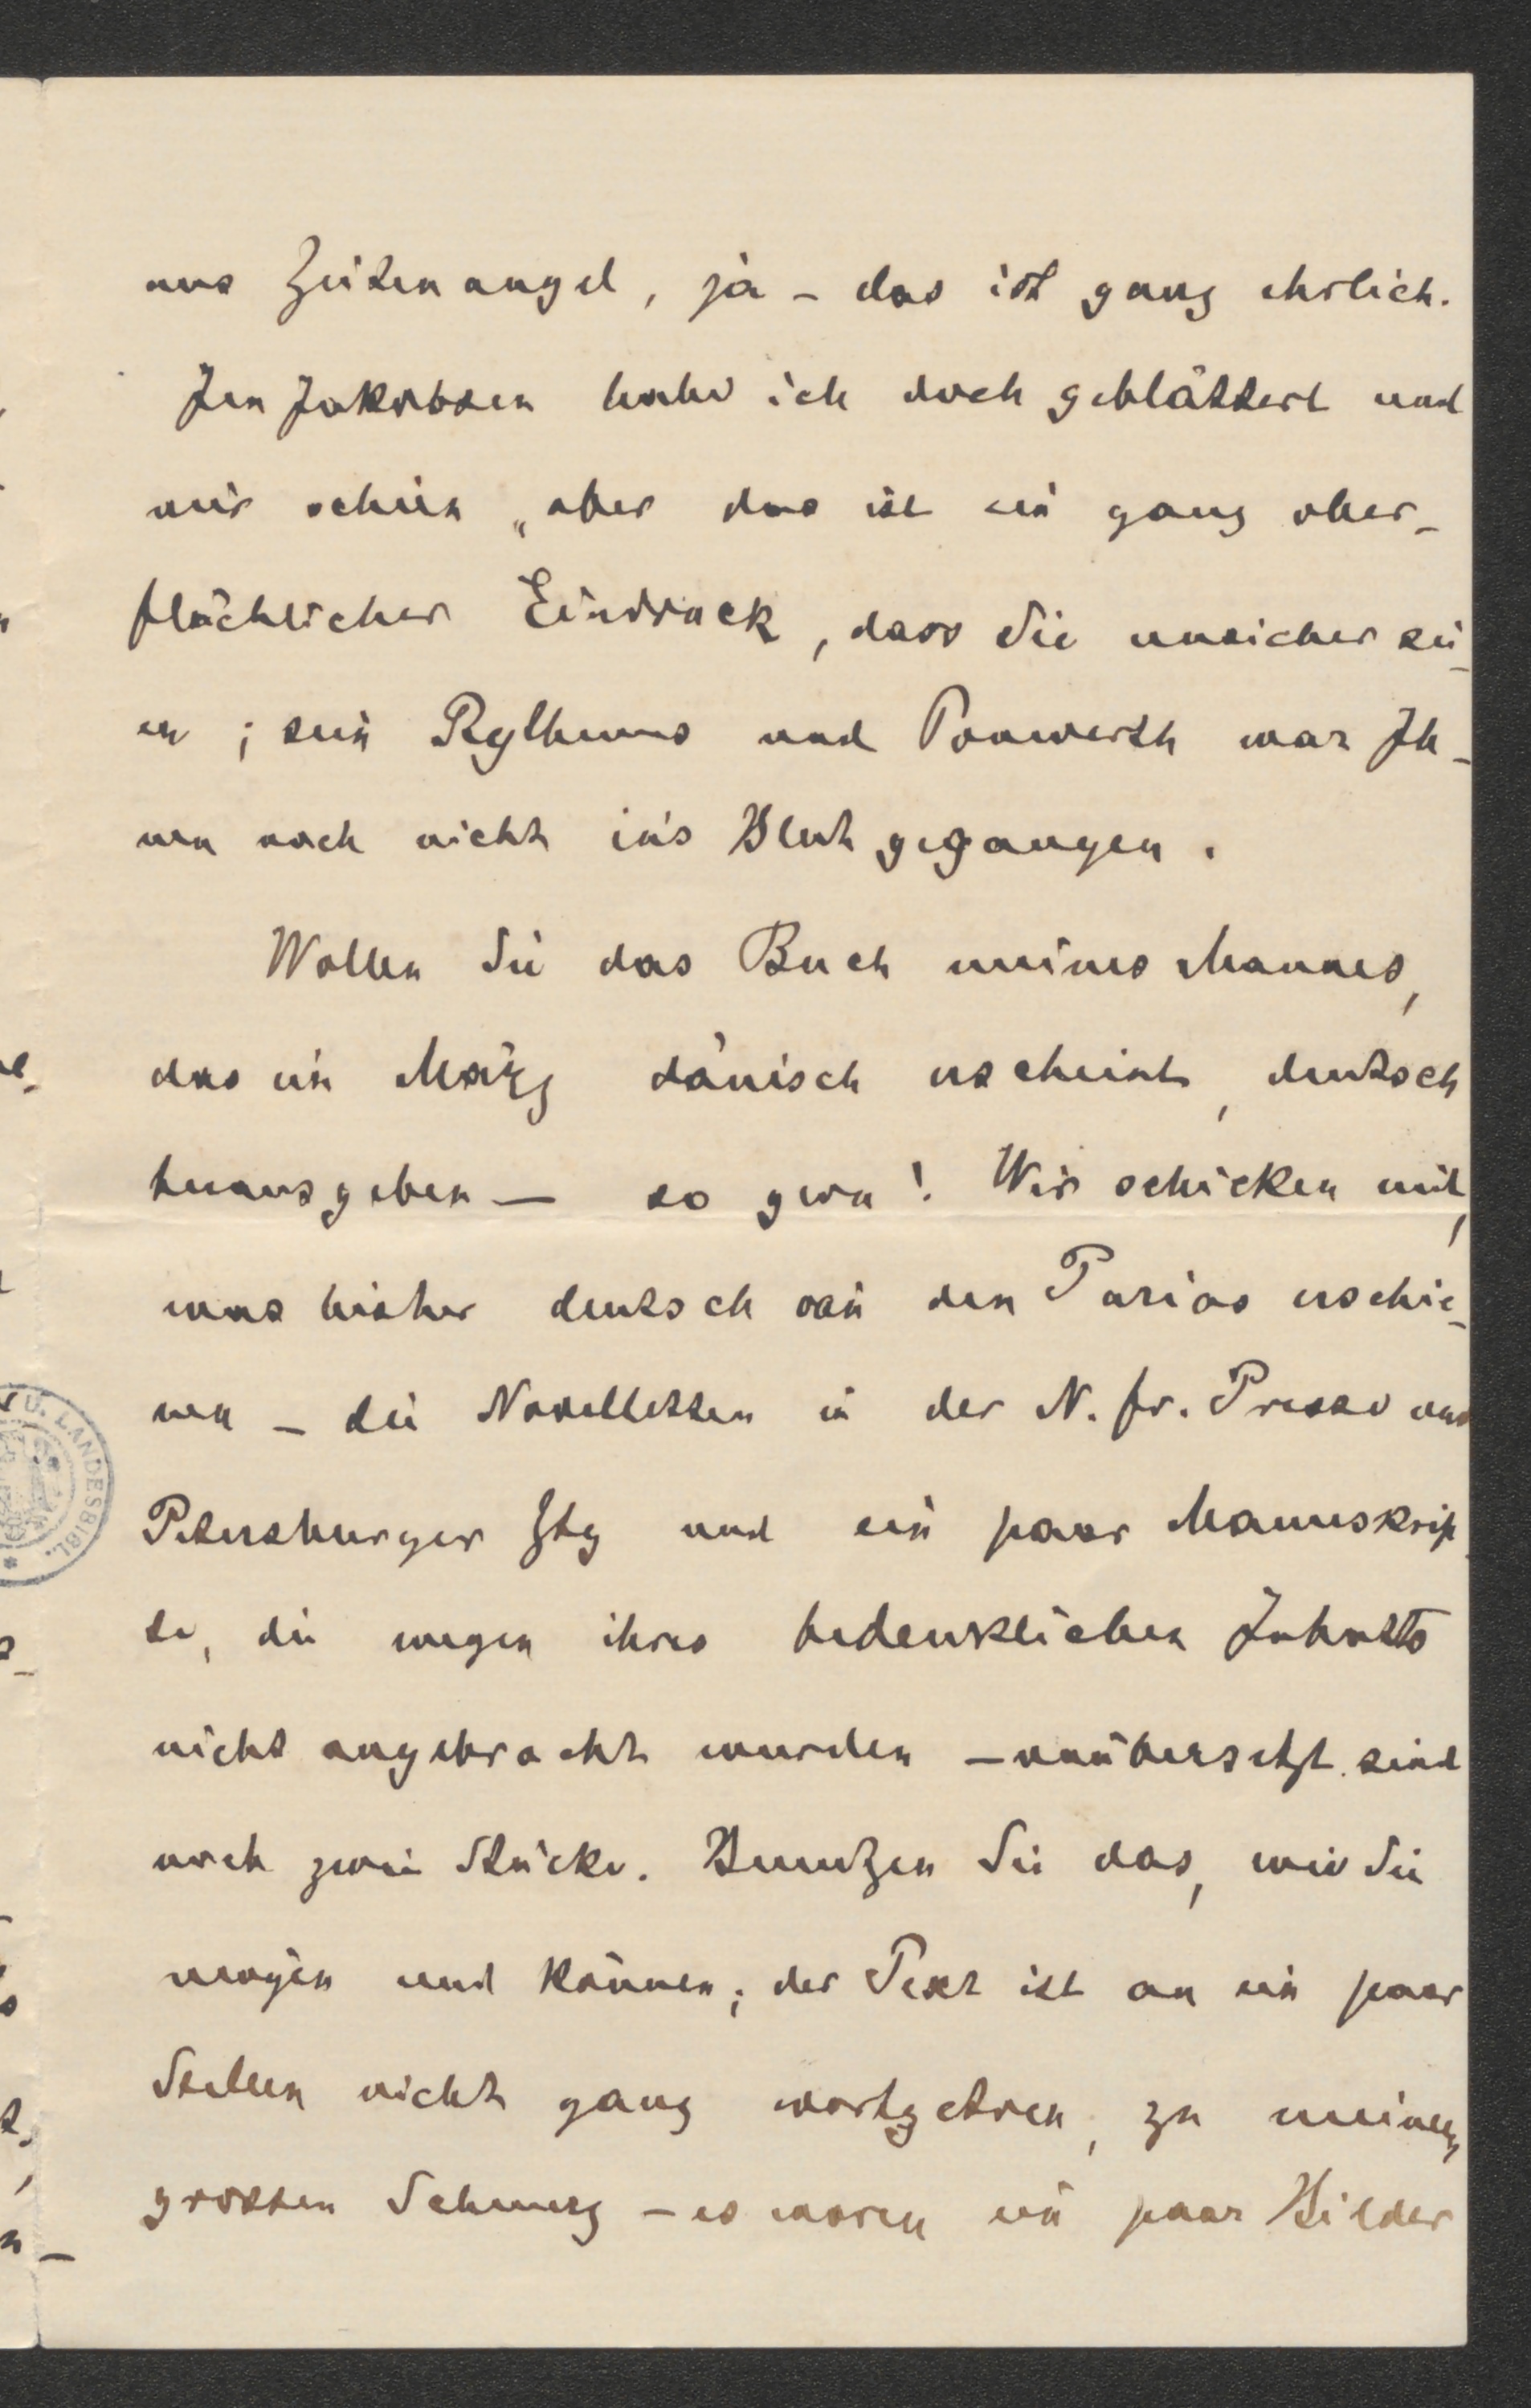 aus Zeitenangel, ja – das ist ganz ehrlich.
Jen Jakobsen habe ich doch geblättert und
mir schien „aber das ist ein ganz ober-
flächlicher Eindruck, dass Sie unsicher sei-
en; sein Rythmus und Tonwerth war Ih-
nen noch nicht in's Bluth gegangen.
Wollen Sie das Buch meines Mannes,
das im März dänisch erscheint, deutsch
herausgeben – so gern! Wir schicken mit,
was bisher deutsch von den Parias erschie-
nen – die Novelletten in der N. fr. Presse und
Petersburger Ztg und ein paar Manuskrip
te, die wegen ihres bedenklichen Inhalts
nicht angebracht wurden – unübersetzt sind
noch zwei Stücke. Benutzen Sie das, wie Sie
mögen und können; der Text ist an ein paar
Stellen nicht ganz wortgetreu, zu meinem
grossen Schmerz – es waren ein paar Bilder
U. LANDESBIBL.